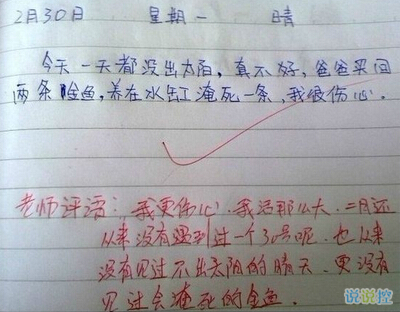 2月30日 星期一 晴
今天一天都没出太阳,真不好,爸爸买回
两条金鱼,养在水缸淹死一条,我很伤心.
老师评语:我更伤心.我活那么大.二月还
从来没有遇到过一个30号呢.也从来
没有见过不出太阳的晴天.更没有
见过会淹死的金鱼.
说说控